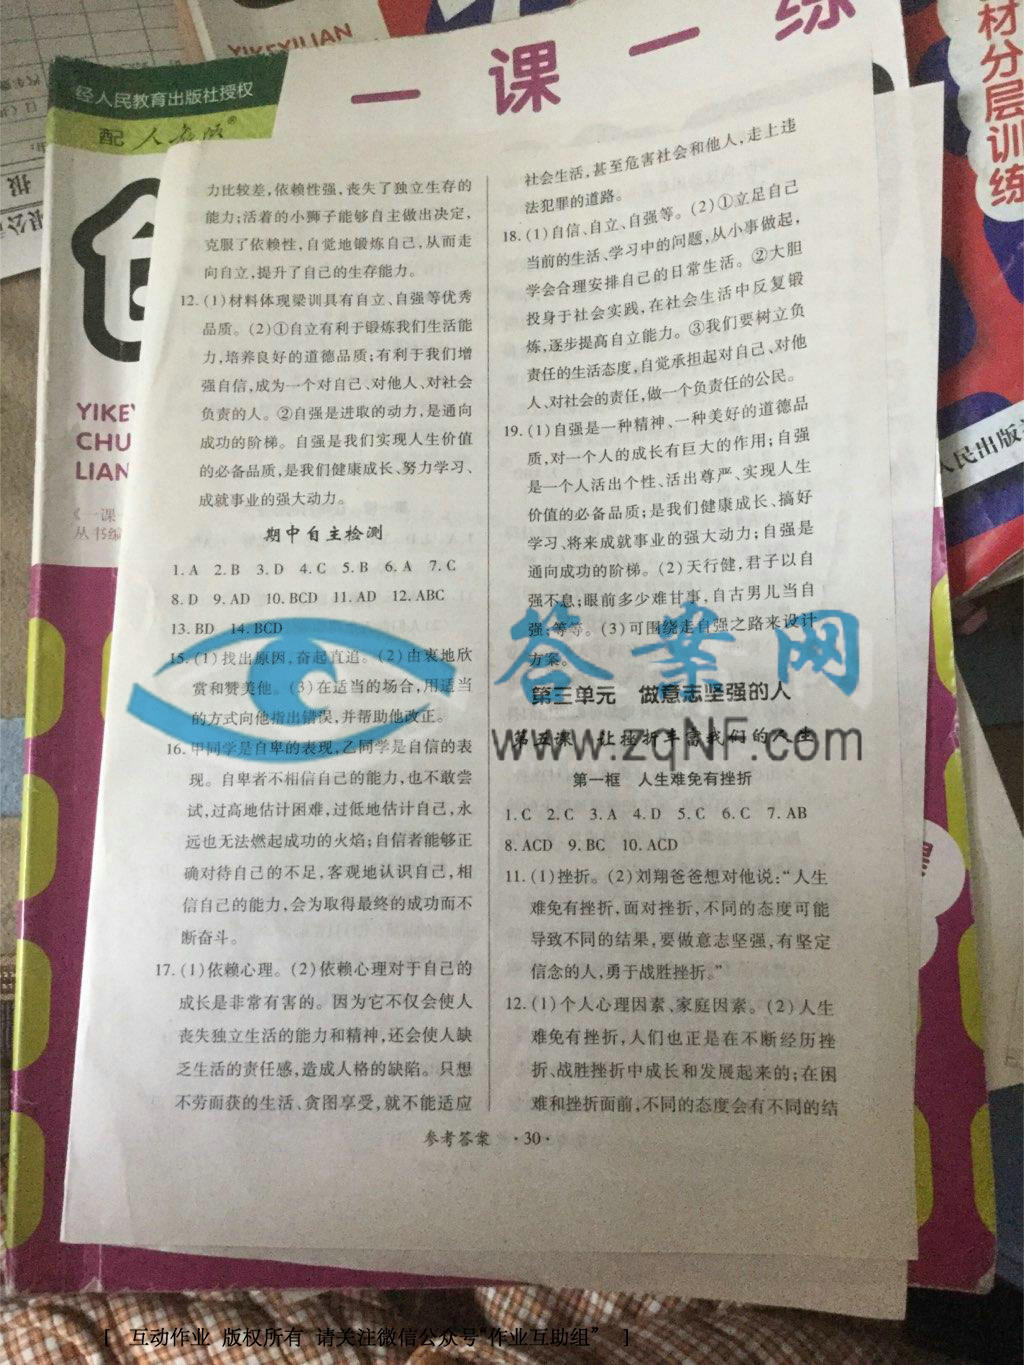 YIKEYILIAN
一课一练
经人民教育出版社授权
配 人教版®
材分层训练
YIKEY
CHU
LIAN
《一课
丛书编
人民出版
力比较差,依赖性强,丧失了独立生存的
能力;活着的小狮子能够自主做出决定,
克服了依赖性,自觉地锻炼自己,从而走
向自立,提升了自己的生存能力。
12. (1)材料体现梁训具有自立、自强等优秀
品质。(2)①自立有利于锻炼我们生活能
力,培养良好的道德品质;有利于我们增
强自信,成为一个对自己、对他人、对社会
负责的人。②自强是进取的动力,是通向
成功的阶梯。自强是我们实现人生价值
的必备品质,是我们健康成长、努力学习、
成就事业的强大动力。
期中自主检测
1. A 2. B 3. D 4. C 5. B 6. A 7. C
8. D 9. AD 10. BCD 11. AD 12. ABC
13. BD 14. BCD
15. (1)找出原因,奋起直追。(2)由衷地欣
赏和赞美他。(3)在适当的场合,用适当
的方式向他指出错误,并帮助他改正。
16. 甲同学是自卑的表现,乙同学是自信的表
现。自卑者不相信自己的能力,也不敢尝
试,过高地估计困难,过低地估计自己,永
远也无法燃起成功的火焰;自信者能够正
确对待自己的不足,客观地认识自己,相
信自己的能力,会为取得最终的成功而不
断奋斗。
17. (1)依赖心理。(2)依赖心理对于自己的
成长是非常有害的。因为它不仅会使人
丧失独立生活的能力和精神,还会使人缺
乏生活的责任感,造成人格的缺陷。只想
不劳而获的生活、贪图享受,就不能适应
社会生活,甚至危害社会和他人,走上违
法犯罪的道路。
18. (1)自信、自立、自强等。(2)①立足自己
当前的生活、学习中的问题,从小事做起,
学会合理安排自己的日常生活。②大胆
投身于社会实践,在社会生活中反复锻
炼,逐步提高自立能力。③我们要树立负
责任的生活态度,自觉承担起对自己、对他
人、对社会的责任,做一个负责任的公民。
19. (1)自强是一种精神、一种美好的道德品
质,对一个人的成长有巨大的作用;自强
是一个人活出个性、活出尊严、实现人生
价值的必备品质;是我们健康成长、搞好
学习、将来成就事业的强大动力;自强是
通向成功的阶梯。(2)天行健,君子以自
强不息;眼前多少难甘事,自古男儿当自
强;等等。(3)可围绕走自强之路来设计
方案。
第三单元 做意志坚强的人
第五课 让挫折丰富我们的人生
第一框 人生难免有挫折
1. C 2. C 3. A 4. D 5. C 6. C 7. AB
8. ACD 9. BC 10. ACD
11. (1)挫折。(2)刘翔爸爸想对他说:“人生
难免有挫折,面对挫折,不同的态度可能
导致不同的结果,要做意志坚强,有坚定
信念的人,勇于战胜挫折。”
12. (1)个人心理因素、家庭因素。(2)人生
难免有挫折,人们也正是在不断经历挫
折、战胜挫折中成长和发展起来的;在困
难和挫折面前,不同的态度会有不同的结
参考答案 ·30·
答案网
www.zqNF.com
[ 互动作业 版权所有 请关注微信公众号“作业互助组” ]